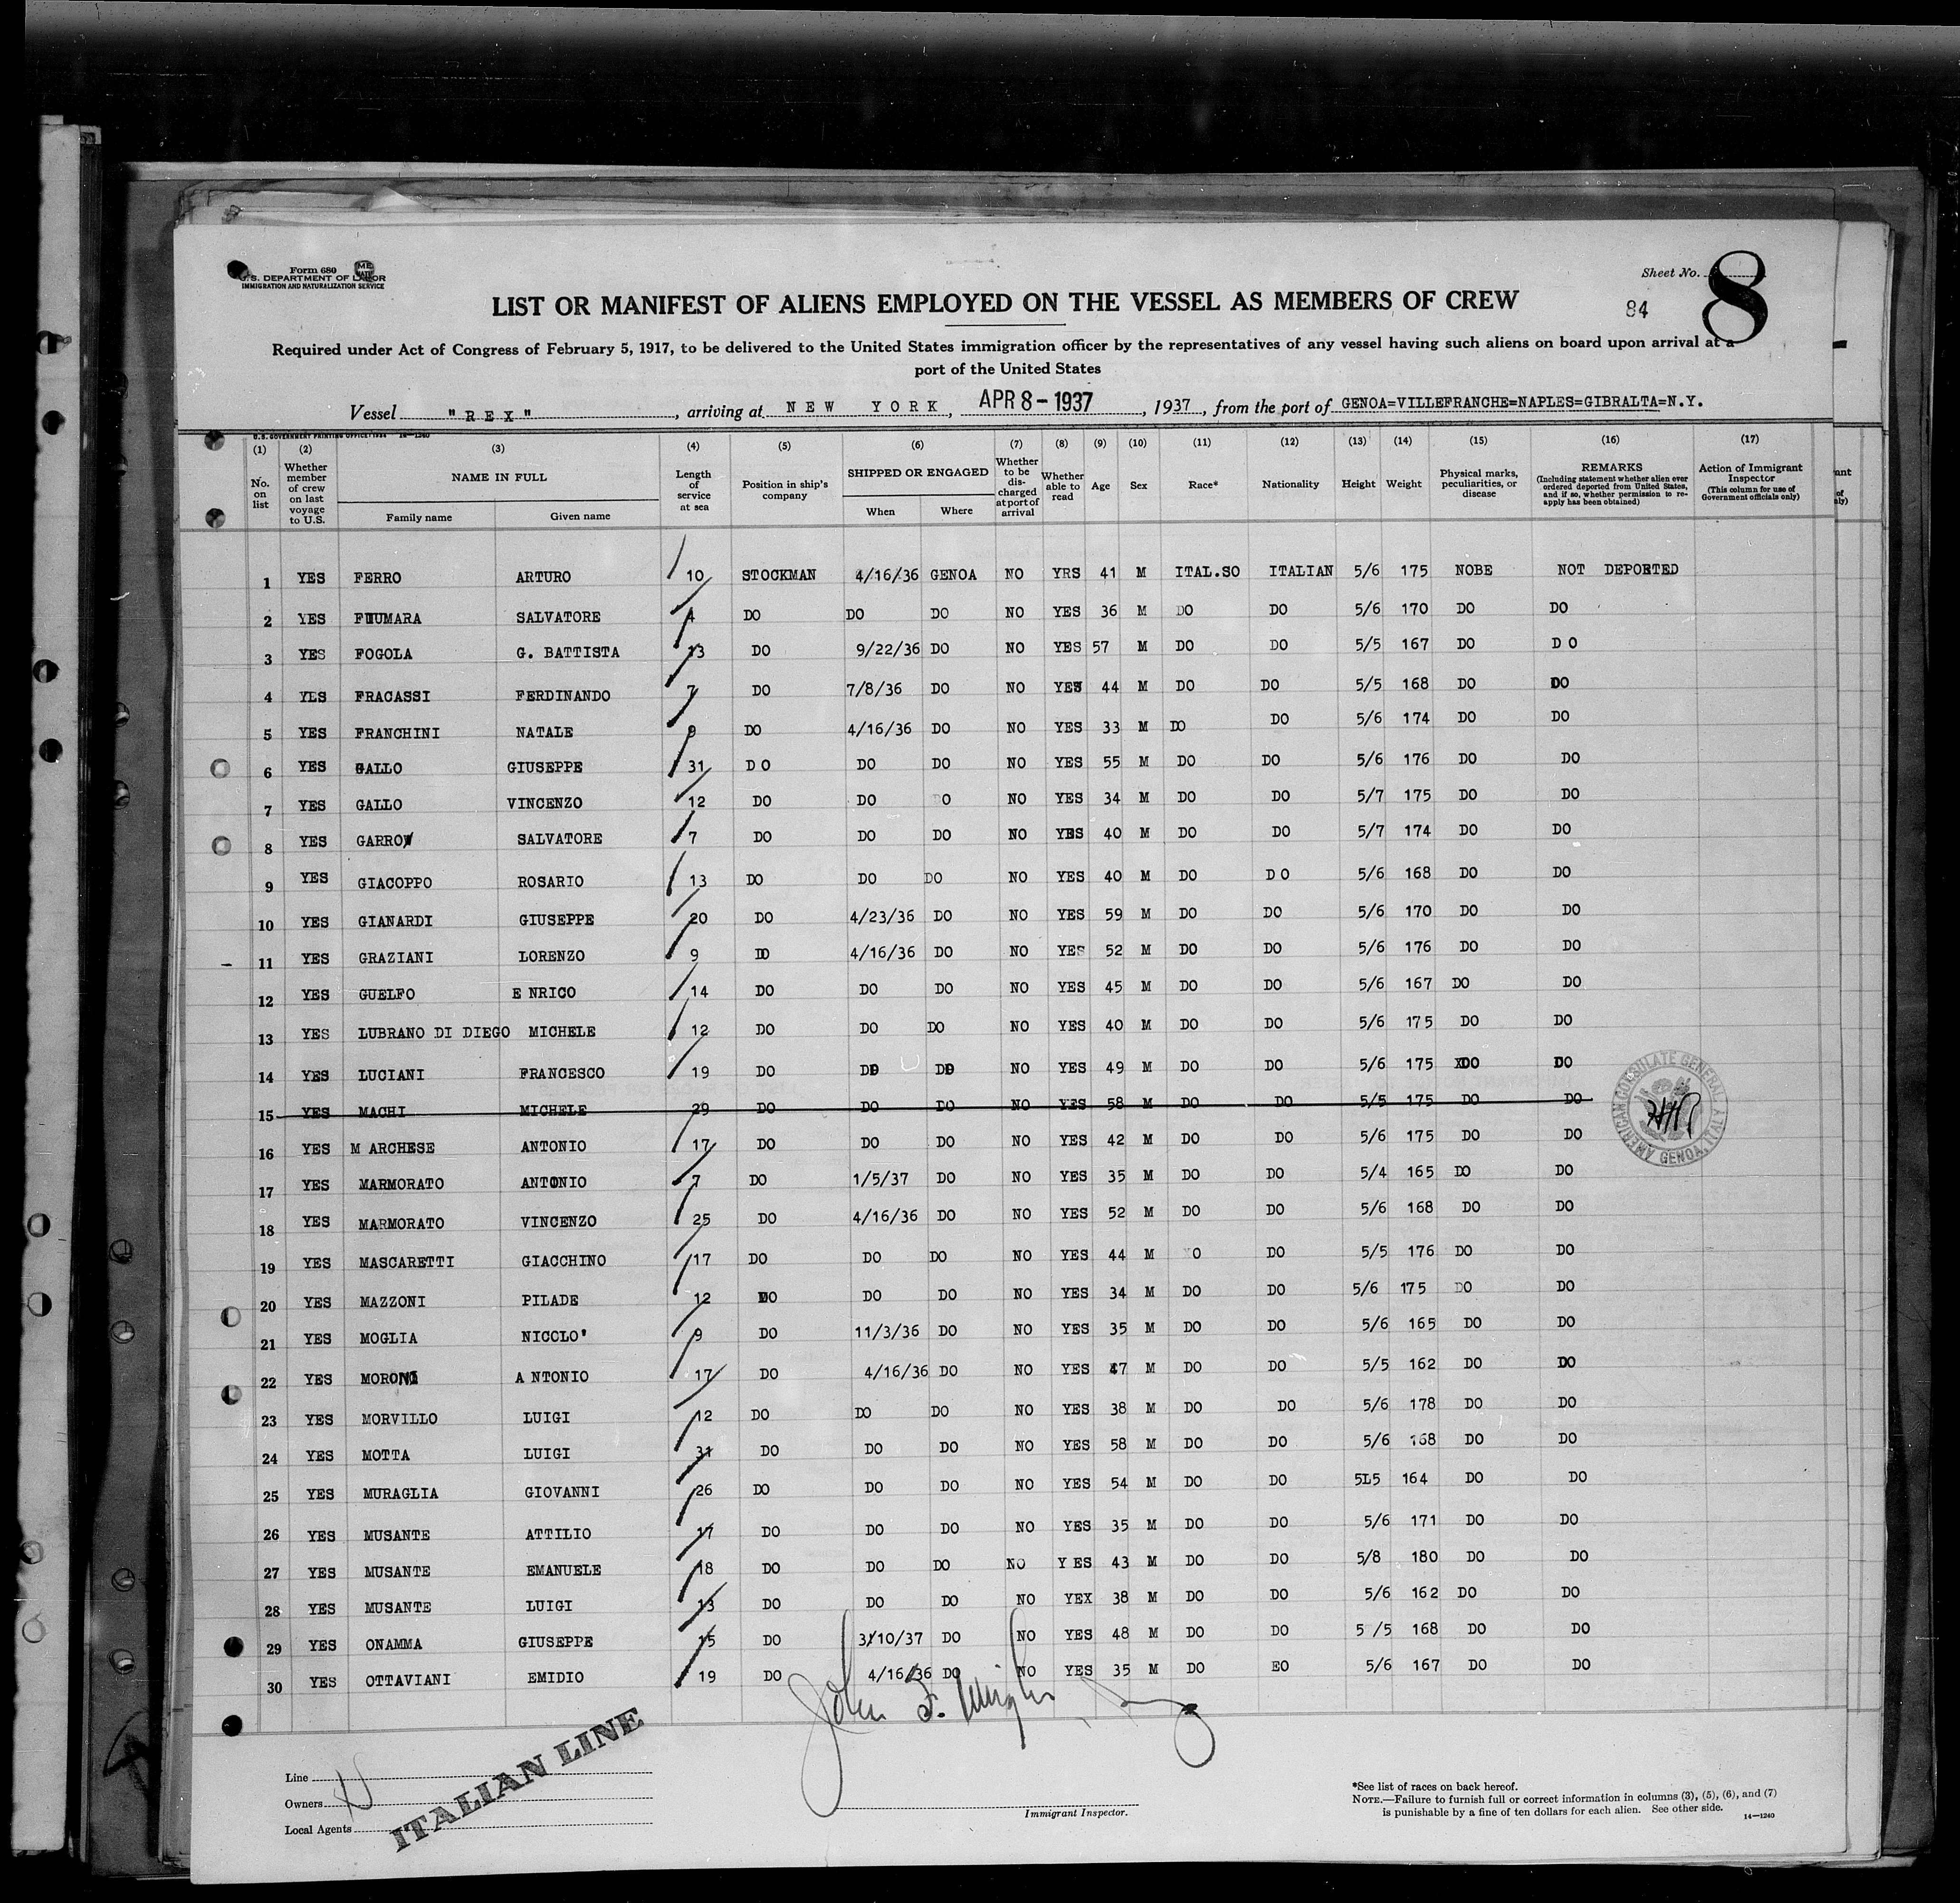 Form 680
U. S. DEPARTMENT OF LABOR
IMMIGRATION AND NATURALIZATION SERVICE
Sheet No. 8
84
LIST OR MANIFEST OF ALIENS EMPLOYED ON THE VESSEL AS MEMBERS OF CREW
Required under Act of Congress of February 5, 1917, to be delivered to the United States immigration officer by the representatives of any vessel having such aliens on board upon arrival at a
port of the United States
Vessel "REX", arriving at NEW YORK, APR 8 - 1937, 1937, from the port of GENOA=VILLEFRANCHE=NAPLES=GIBRALTA=N.Y.
U. S. GOVERNMENT PRINTING OFFICE: 1934 14—1240
(1) (2) (3) (4) (5) (6) (7) (8) (9) (10) (11) (12) (13) (14) (15) (16) (17)
No. on list
Whether member of crew on last voyage to U.S.
NAME IN FULL
Family name Given name
Length of service at sea
Position in ship's company
SHIPPED OR ENGAGED
When Where
Whether to be discharged at port of arrival
Whether able to read
Age
Sex
Race*
Nationality
Height
Weight
Physical marks, peculiarities, or disease
REMARKS
(Including statement whether alien ever ordered deported from United States, and if so, whether permission to reapply has been obtained)
Action of Immigrant Inspector
(This column for use of Government officials only)
1 YES FERRO ARTURO 10 STOCKMAN 4/16/36 GENOA NO YRS 41 M ITAL.SO ITALIAN 5/6 175 NOBE NOT DEPORTED
2 YES FIUMARA SALVATORE 4 DO DO DO NO YES 36 M DO DO 5/6 170 DO DO
3 YES FOGOLA G. BATTISTA 13 DO 9/22/36 DO NO YES 57 M DO DO 5/5 167 DO D O
4 YES FRACASSI FERDINANDO 7 DO 7/8/36 DO NO YES 44 M DO DO 5/5 168 DO DO
5 YES FRANCHINI NATALE 9 DO 4/16/36 DO NO YES 33 M DO DO 5/6 174 DO DO
6 YES GALLO GIUSEPPE 31 D O DO DO NO YES 55 M DO DO 5/6 176 DO DO
7 YES GALLO VINCENZO 12 DO DO DO NO YES 34 M DO DO 5/7 175 DO DO
8 YES GARRO SALVATORE 7 DO DO DO NO YES 40 M DO DO 5/7 174 DO DO
9 YES GIACOPPO ROSARIO 13 DO DO DO NO YES 40 M DO D O 5/6 168 DO DO
10 YES GIANARDI GIUSEPPE 20 DO 4/23/36 DO NO YES 59 M DO DO 5/6 170 DO DO
11 YES GRAZIANI LORENZO 9 DO 4/16/36 DO NO YES 52 M DO DO 5/6 176 DO DO
12 YES GUELFO E NRICO 14 DO DO DO NO YES 45 M DO DO 5/6 167 DO DO
13 YES LUBRANO DI DIEGO MICHELE 12 DO DO DO NO YES 40 M DO DO 5/6 175 DO DO
14 YES LUCIANI FRANCESCO 19 DO DO DO NO YES 49 M DO DO 5/6 175 XDO DO
15 YES MACHI MICHELE 29 DO DO DO NO YES 58 M DO DO 5/5 175 DO DO
16 YES M ARCHESE ANTONIO 17 DO DO DO NO YES 42 M DO DO 5/6 175 DO DO
17 YES MARMORATO ANTONIO 7 DO 1/5/37 DO NO YES 35 M DO DO 5/4 165 DO DO
18 YES MARMORATO VINCENZO 25 DO 4/16/36 DO NO YES 52 M DO DO 5/6 168 DO DO
19 YES MASCARETTI GIACCHINO 17 DO DO DO NO YES 44 M DO DO 5/5 176 DO DO
20 YES MAZZONI PILADE 12 DO DO DO NO YES 34 M DO DO 5/6 175 DO DO
21 YES MOGLIA NICOLO' 9 DO 11/3/36 DO NO YES 35 M DO DO 5/6 165 DO DO
22 YES MORONI A NTONIO 17 DO 4/16/36 DO NO YES 47 M DO DO 5/5 162 DO DO
23 YES MORVILLO LUIGI 12 DO DO DO NO YES 38 M DO DO 5/6 178 DO DO
24 YES MOTTA LUIGI 31 DO DO DO NO YES 58 M DO DO 5/6 168 DO DO
25 YES MURAGLIA GIOVANNI 26 DO DO DO NO YES 54 M DO DO 5L5 164 DO DO
26 YES MUSANTE ATTILIO 17 DO DO DO NO YES 35 M DO DO 5/6 171 DO DO
27 YES MUSANTE EMANUELE 18 DO DO DO NO Y ES 43 M DO DO 5/8 180 DO DO
28 YES MUSANTE LUIGI 13 DO DO DO NO YEX 38 M DO DO 5/6 162 DO DO
29 YES ONAMMA GIUSEPPE 15 DO 3/10/37 DO NO YES 48 M DO DO 5 /5 168 DO DO
30 YES OTTAVIANI EMIDIO 19 DO 4/16/36 DO NO YES 35 M DO EO 5/6 167 DO DO
AMERICAN CONSULATE GENERAL GENOA, ITALY
John F.
Line
Owners
Local Agents
ITALIAN LINE
Immigrant Inspector.
*See list of races on back hereof.
NOTE.—Failure to furnish full or correct information in columns (3), (5), (6), and (7)
is punishable by a fine of ten dollars for each alien. See other side. 14—1240